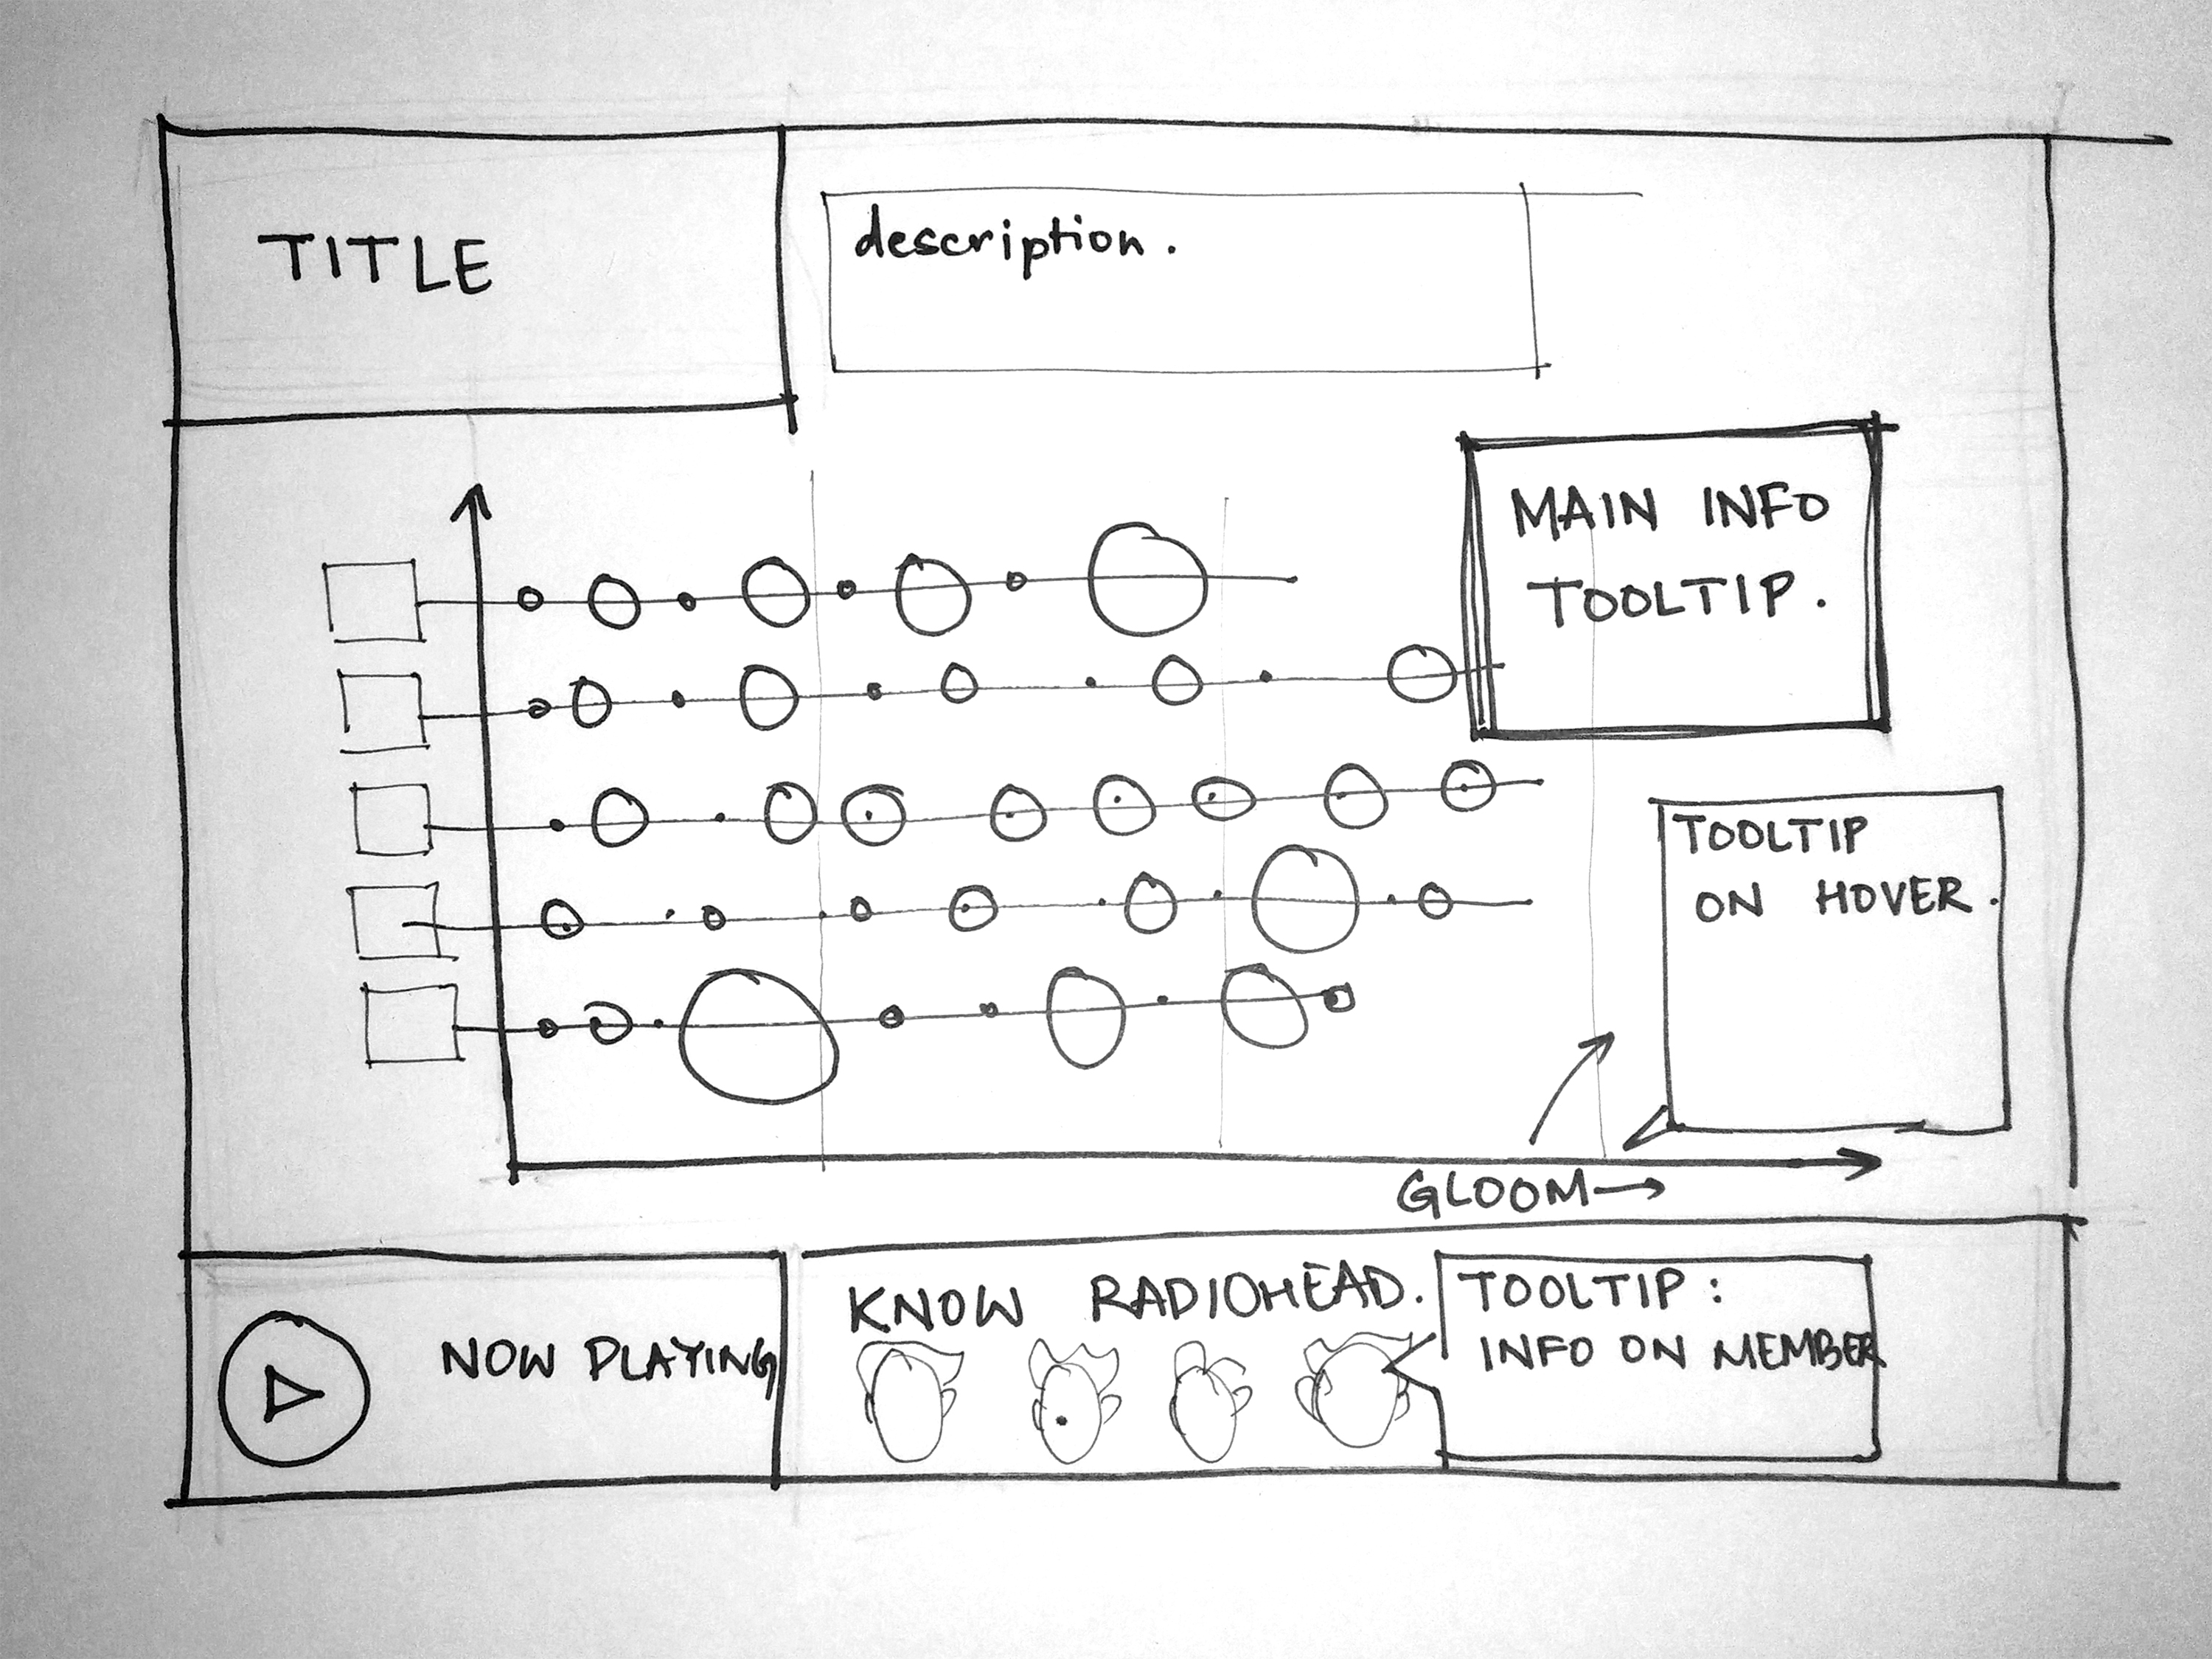 TITLE
description.
MAIN INFO
TOOLTIP.
TOOLTIP
ON HOVER.
GLOOM→
NOW PLAYING
KNOW RADIOHEAD.
TOOLTIP:
INFO ON MEMBER